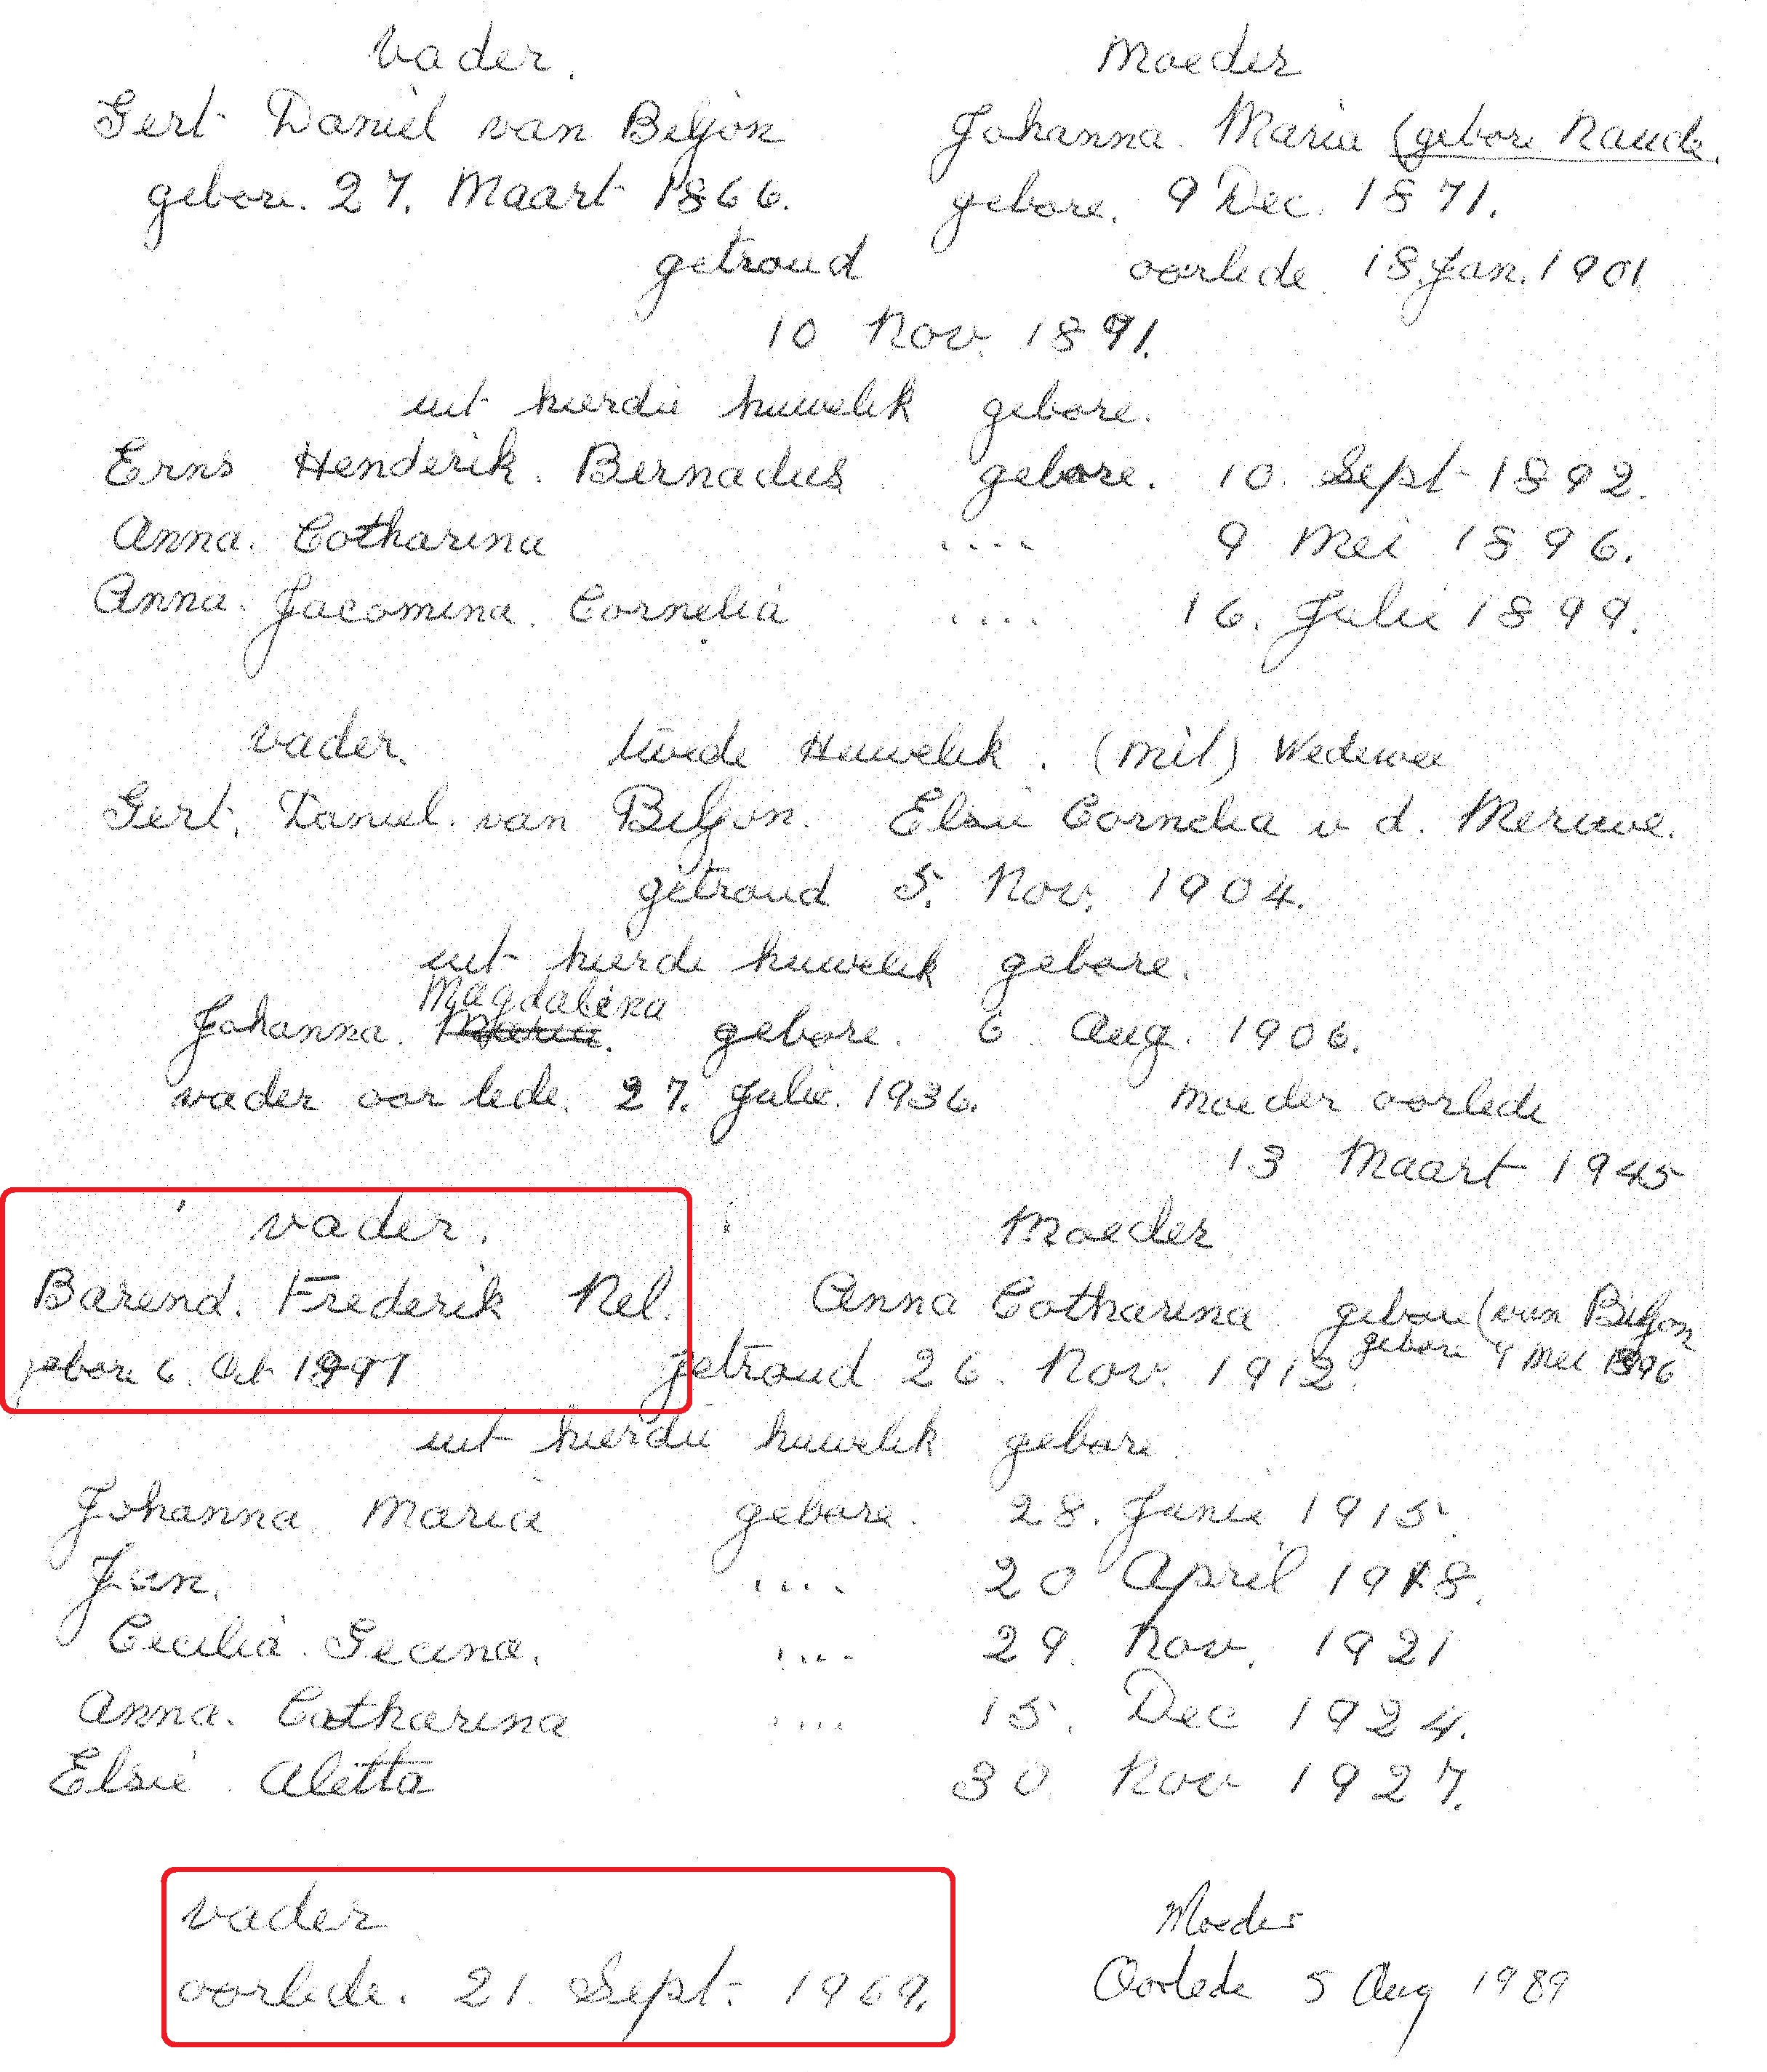 Vader. Moeder
Gert Daniel van Biljon Johanna. Maria (gebore Naude.
gebore. 27. Maart 1866. gebore. 9 Dec. 1871.
getroud oorlede. 18. Jan. 1901
10 Nov. 1891.
uit hierdie huwelik gebore.
Erns Henderik. Bernadus gebore. 10. Sept 1892.
Anna. Catharina .... 9 Mei 1896.
Anna. Jacomina. Cornelia .... 16. Julie 1899.
vader. twede Huwelik. (mit) Wedewee
Gert. Daniel. van Biljon. Elsie Cornelia v d. Merwwe.
getroud 5. Nov. 1904.
uit hierde huwelik gebore.
Magdalena
Johanna. Maria. gebore. 6 Aug. 1906.
vader oorlede. 27. Julie. 1936. Moeder oorlede
13 Maart 1945
vader. Moeder
Barend. Frederik Nel. Anna Catharina gebore (van Biljon
gebore 6. Oct getroud 26. Nov. 1912. gebore 9 Mei 1896
uit hierdie huwelik gebore
Johanna Maria gebore. 28. Junie 1915.
Jan. .... 20 April 1918.
Cecilia. Gecina. .... 29. Nov. 1921
Anna. Catharina .... 15. Dec 1924.
Elsie. Aletta 30 Nov 1927.
vader Moeder
oorlede. 21. Sept. 1969. Oorlede 5 Aug 1989